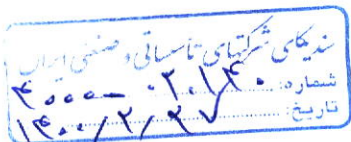 سندیکای شرکتهای تأسیساتی و صنعتی ایران
شماره: ۴۰۰۰-۰۲.۱/۴۰
تاریخ: ۱۴۰۰/۲/۲۷